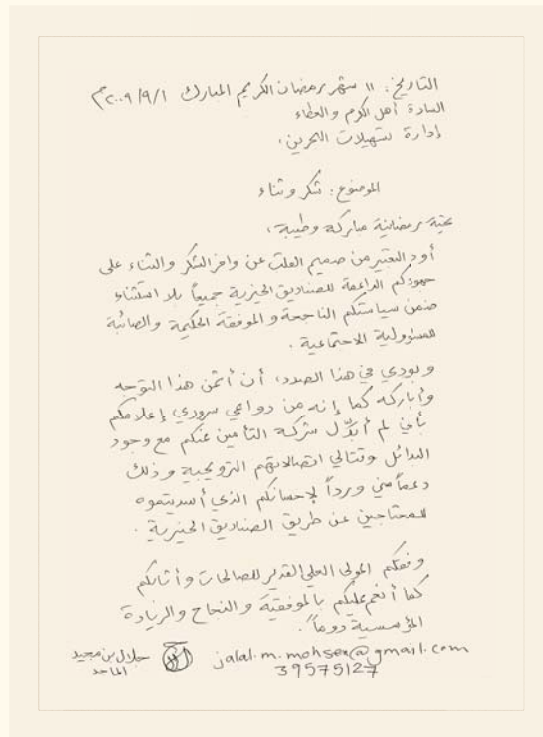 التاريخ: ١١ شهر رمضان الكريم المبارك ٢٠٠٩/٩/١م
السادة أهل الكرم والعطاء
إدارة تسهيلات البحرين،
الموضوع: شكر وثناء
تحية رمضانية مباركة وطيبة،
أود التعبير من صميم القلب عن وافر الشكر والثناء على
جهودكم الداعمة للصناديق الخيرية جميعاً بلا استثناء
ضمن سياستكم الناجحة و الموفقة الحكيمة والصائبة
للمسؤولية الاجتماعية.
وبودي في هذا الصدد، أن أثمن هذا التوجه
وأباركه كما إنه من دواعي سروري إعلامكم
بأني لم أبدّل شركة التأمين عنكم مع وجود
البدائل وتتالي اتصالاتهم الترويجية وذلك
دعماً مني ورداً لإحسانكم الذي أسديتموه
للمحتاجين عن طريق الصناديق الخيرية.
وفقكم المولى العلي القدير للصالحات وأثابكم
كما أنعم عليكم بالموفقية والنجاح والريادة
المؤسسية دوماً.
jalal.m.mohsen@gmail.com جلال بن مجيد
39575127 الماجد